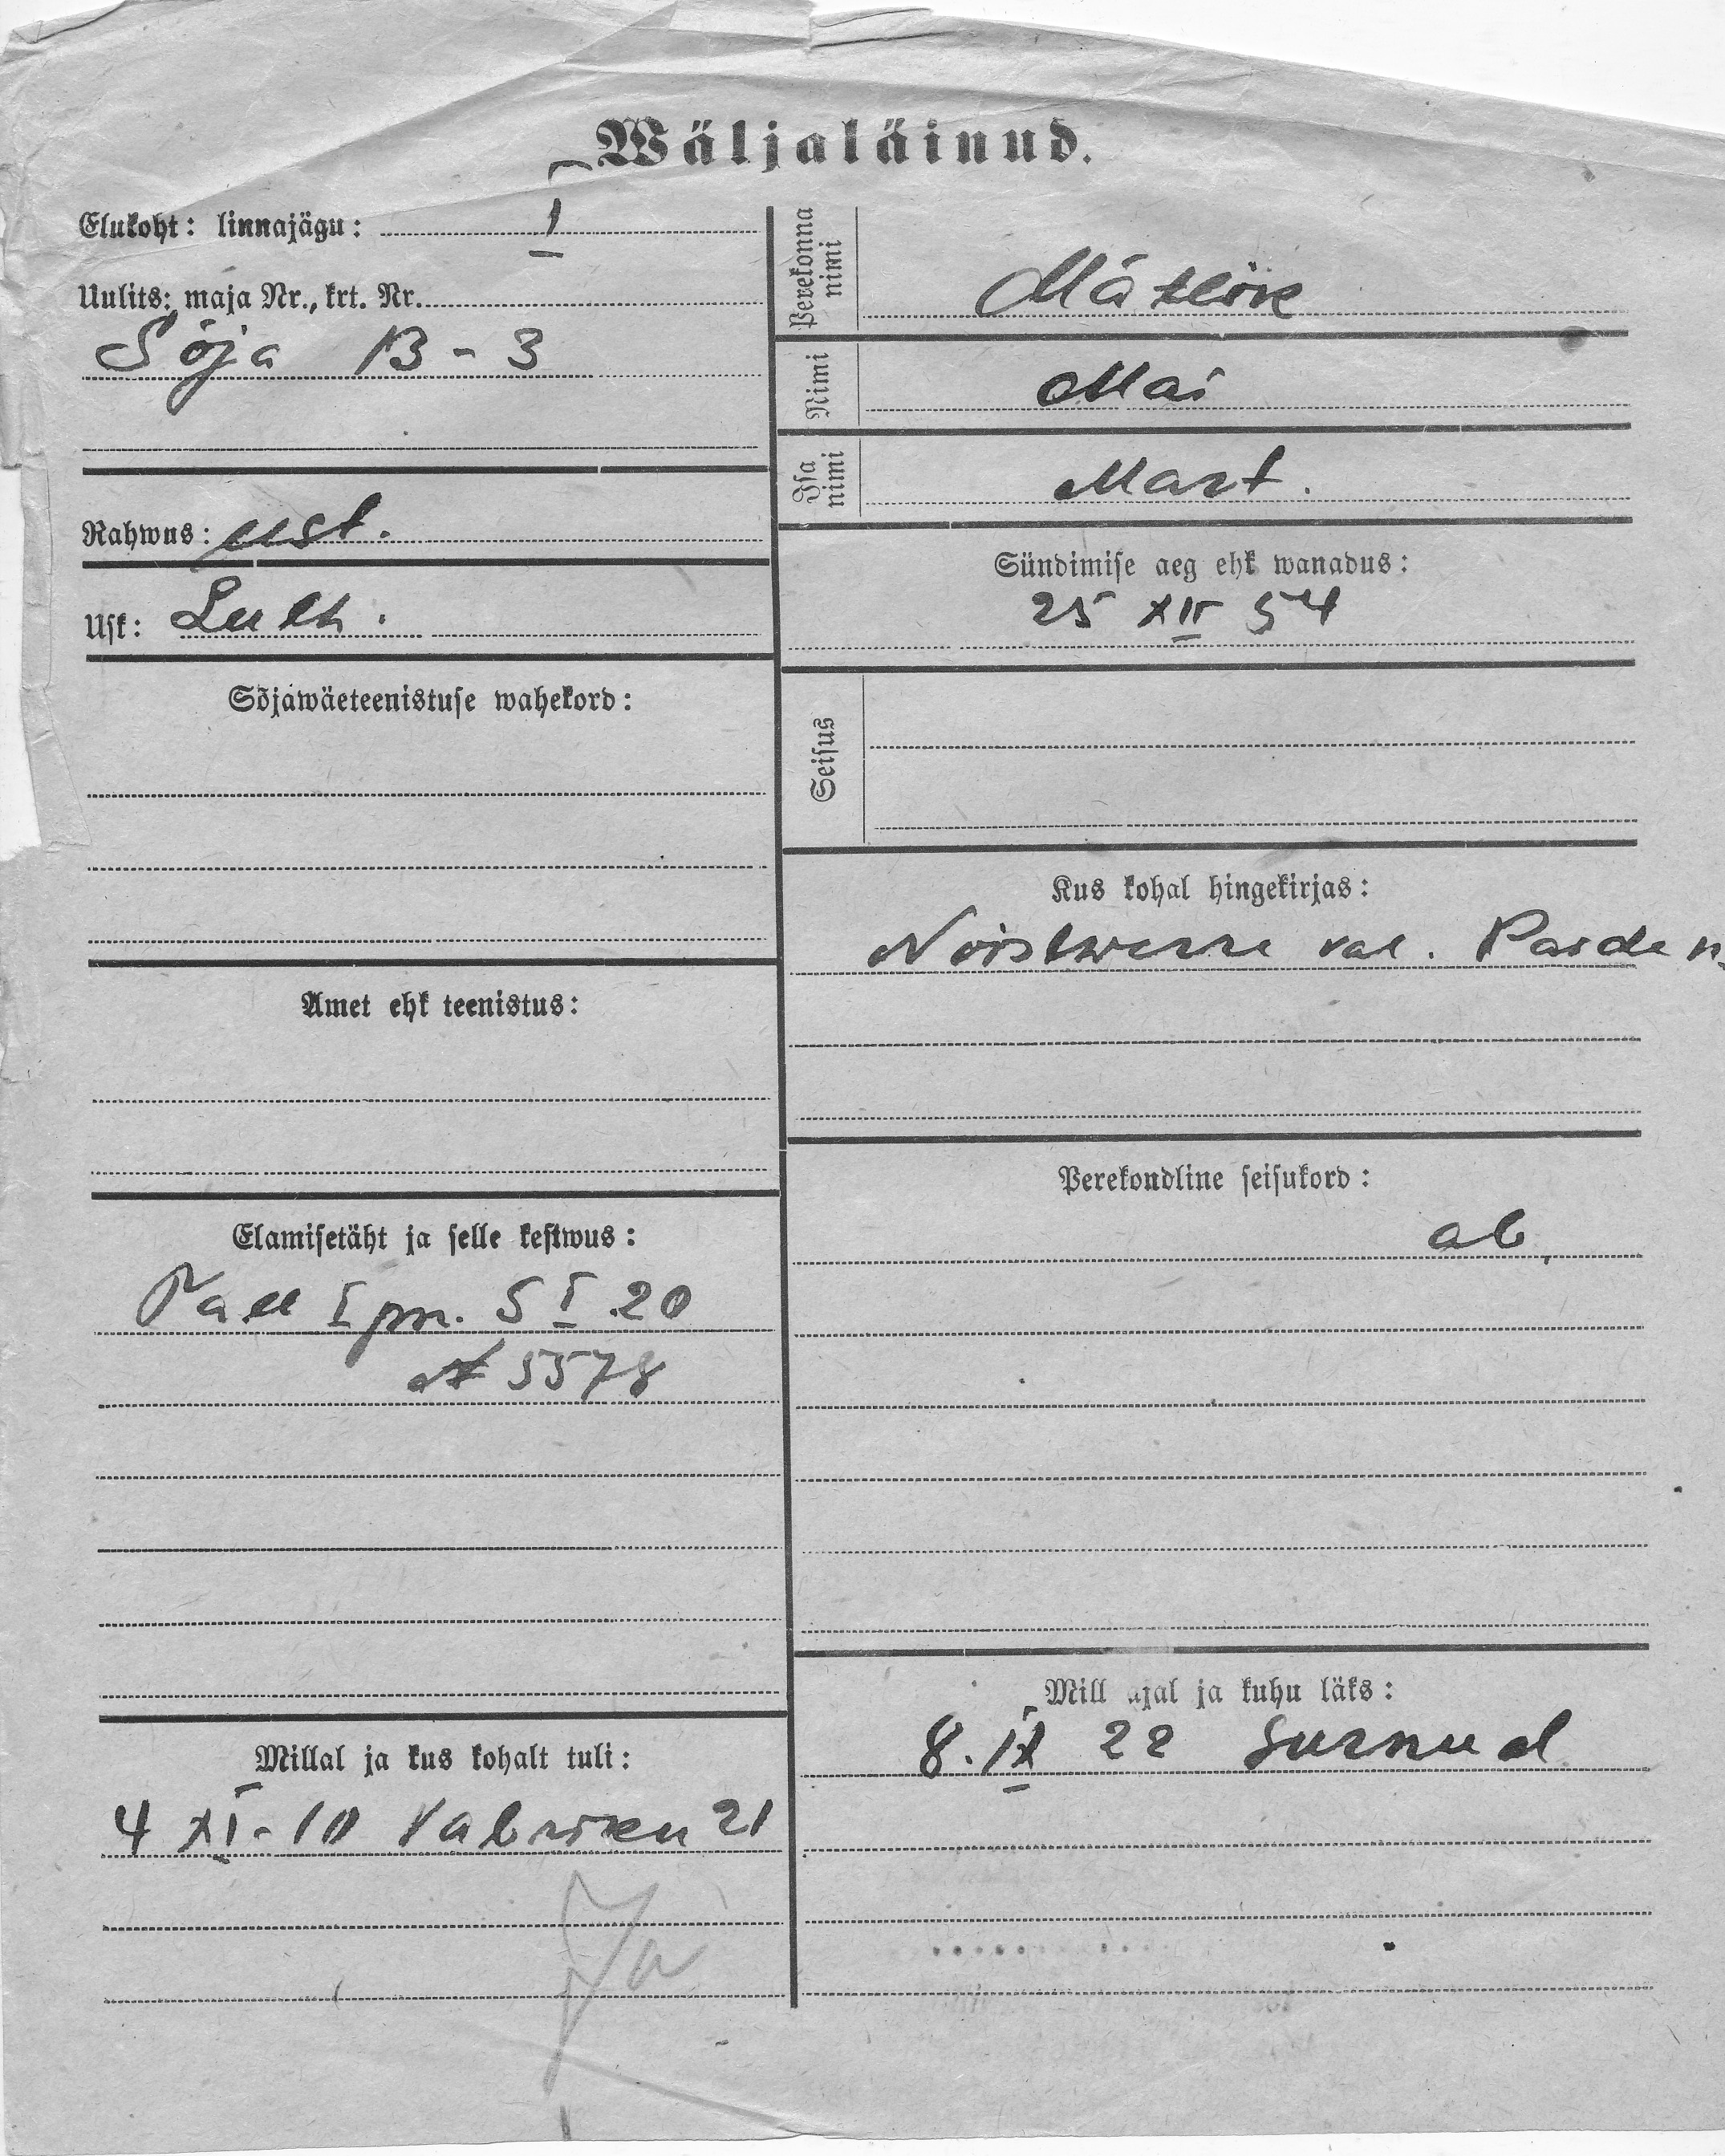 Wäljaläinud.
Elukoht: linnajägu: I
Uulits; maja Nr., krt. Nr.
Sõja 13 - 3
Rahwus: est.
Usk: Luth.
Sõjawäeteenistuse wahekord:
Amet ehk teenistus:
Elamisetäht ja selle kestwus:
Tall I pm. 5 I 20
№ 5578
Millal ja kus kohalt tuli:
4 XI - 10 Vabriku 21
Perekonna nimi
Nimi Mai
Isa nimi Mart.
Sündimise aeg ehk wanadus:
25 XII 54
Seisus
Kus kohal hingekirjas:
Noistwerre val.
Perekondline seisukord:
ab.
Mill ajal ja kuhu läks:
8. IX 22 Surnud